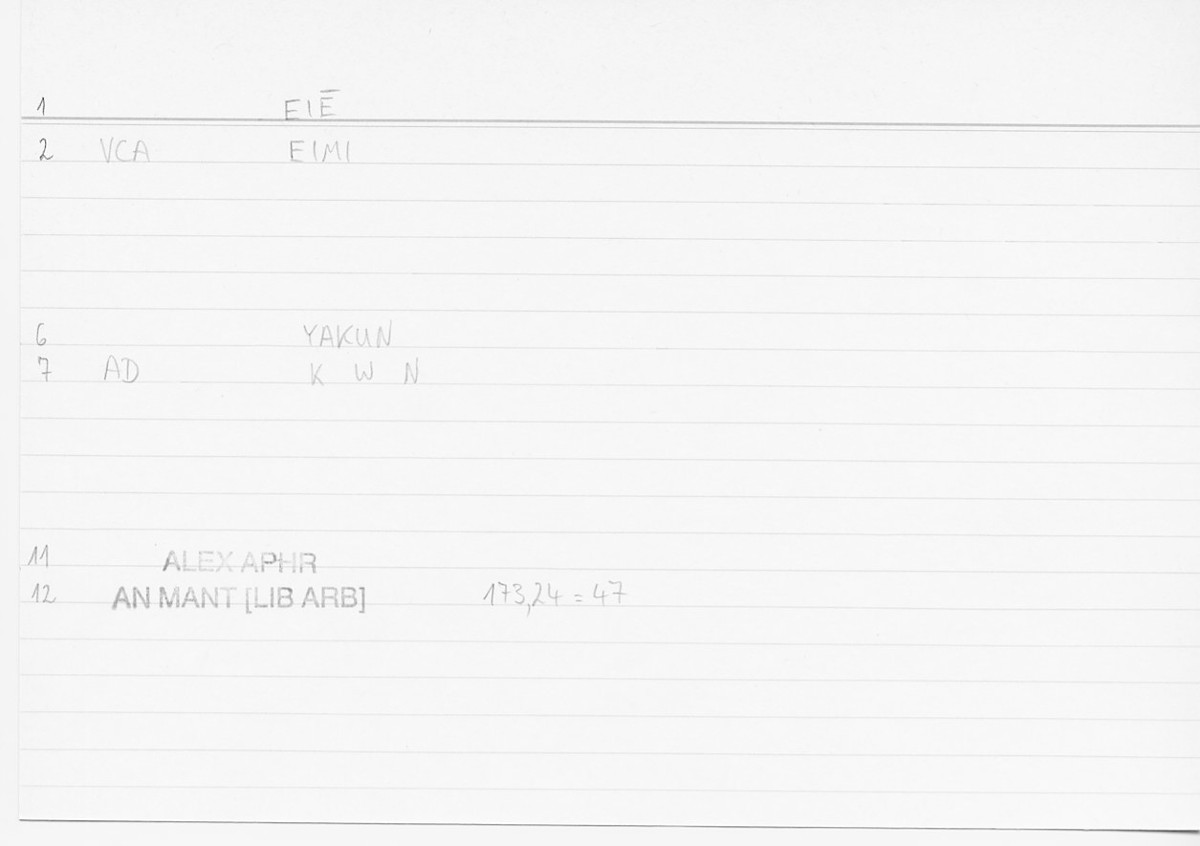 1 EIĒ
2 VCA EIMI
6 YAKUN
7 AD K W N
11 ALEX APHR
12 AN MANT [LIB ARB] 173,24 = 47